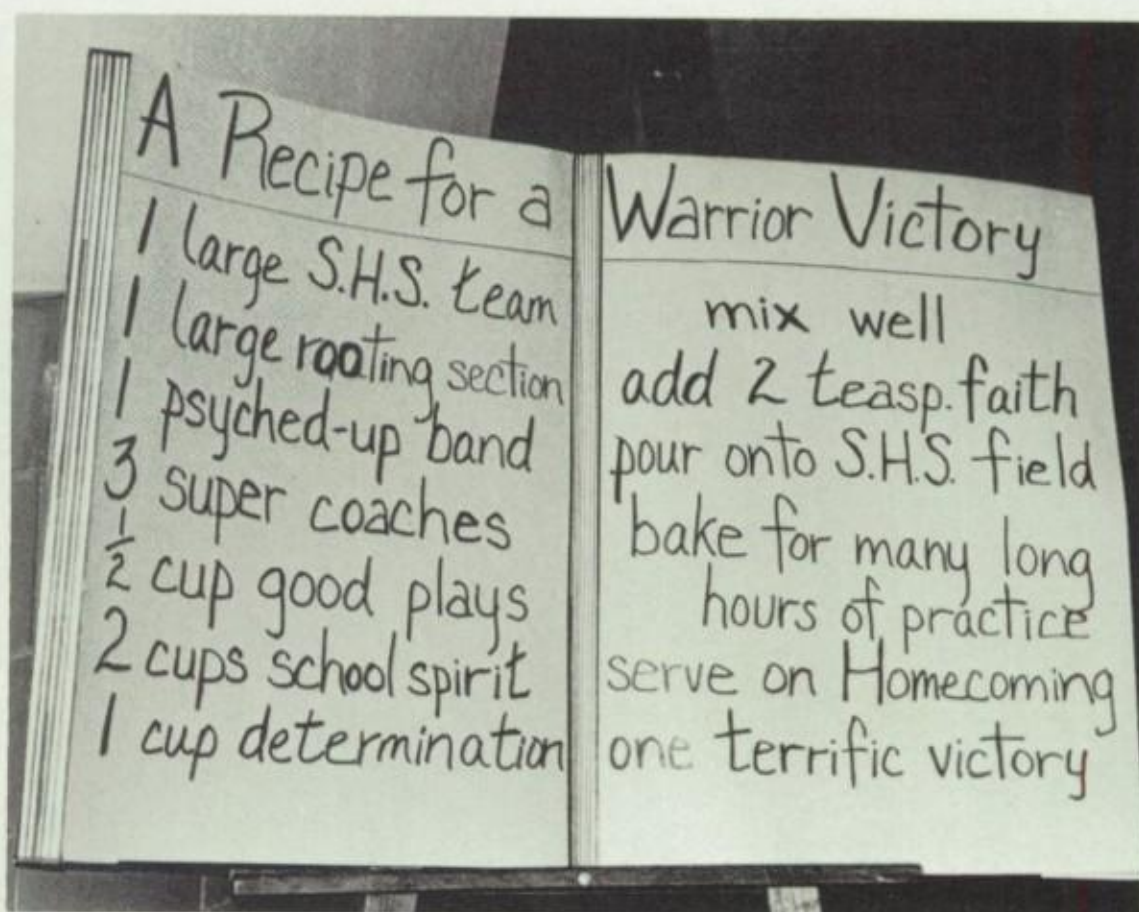 A Recipe for a
1 large S.H.S. team
1 large rooting section
1 psyched-up band
3 super coaches
1/2 cup good plays
2 cups school spirit
1 cup determination
Warrior Victory
mix well
add 2 teasp. faith
pour onto S.H.S. field
bake for many long
hours of practice
serve on Homecoming
one terrific victory